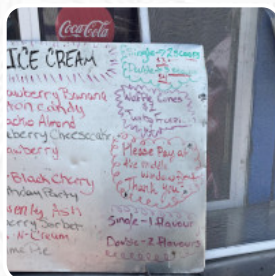 Coca-Cola
ICE CREAM
awberry Banana
ton candy
achio Almond
eberry Cheesecake
awberry
Black Cherry
thday Party
venly Ash
berry Sorbet
n-Cream
Waffle Cones
Please Pay at
the middle
window first
Thank You
Single-1 flavour
Double-2 flavours